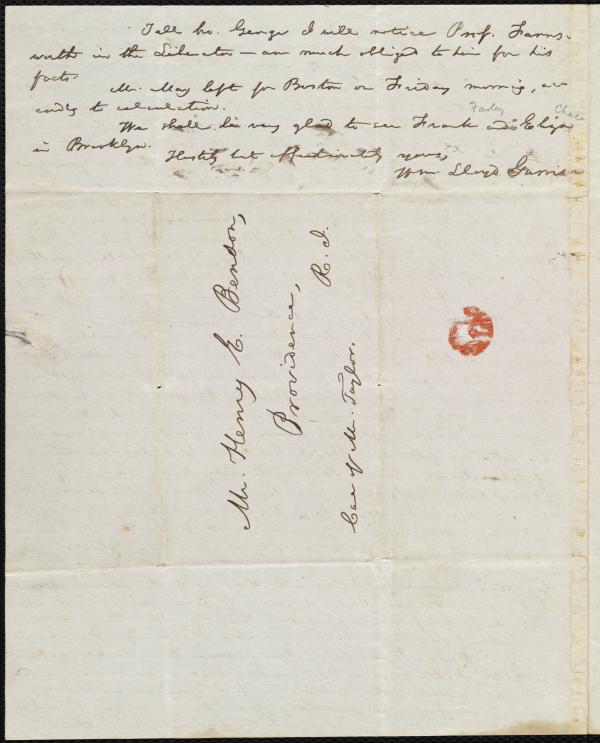 Tell bro. George I will notice Prof. Farns-
worth in the Liberator — am much obliged to him for his
facts.
Mr. May left for Boston on Friday morning, ac-
cordg to calculation.
Farley Chace
We shall be very glad to see Frank and Eliza
in Brooklyn.
Hastily but affectionately yours,
Wm. Lloyd Garrison
Mr. Henry E. Benson,
Providence,
R. I.
Care of Mr. Taylor.